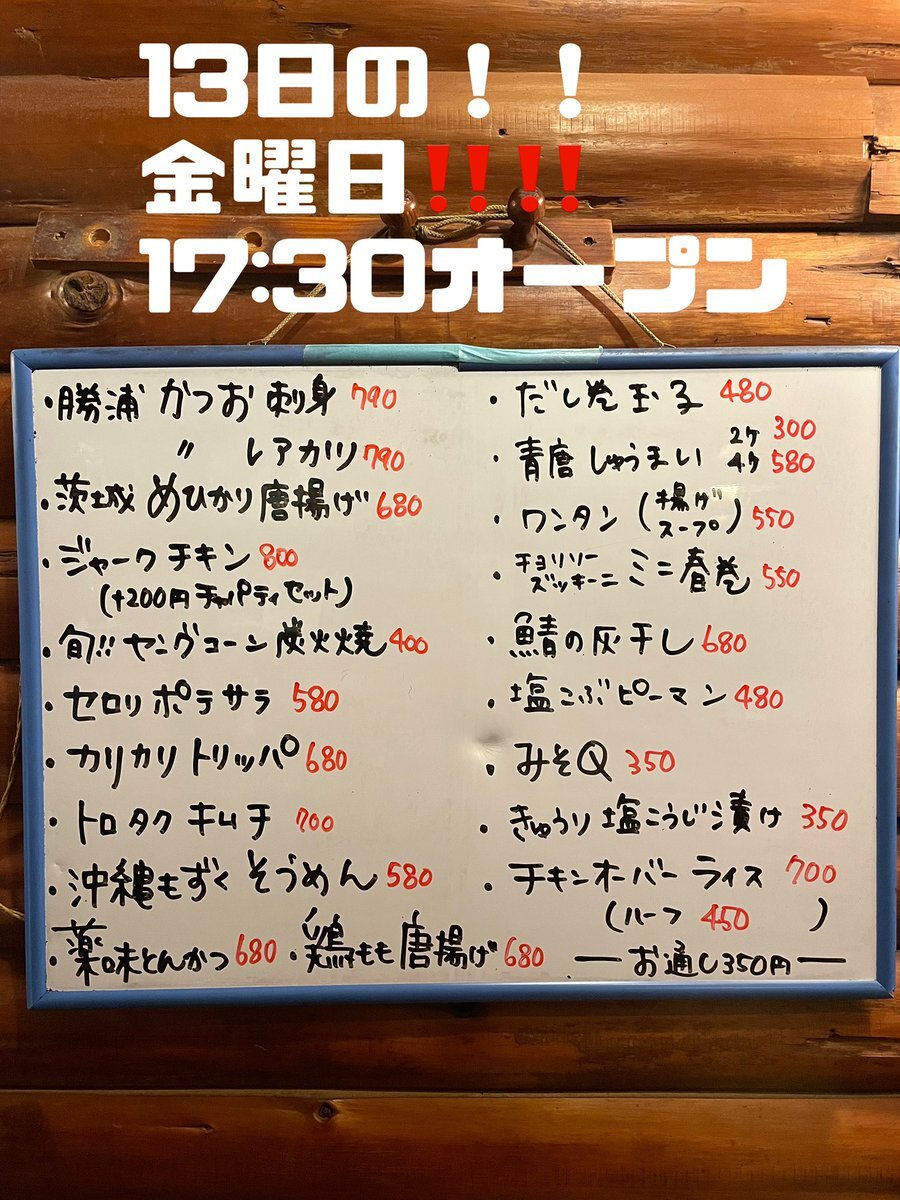 13日の！！
金曜日‼️‼️
17:30オープン
・勝浦 かつお 刺身 790
〃 レアカツ 790
・茨城 めひかり 唐揚げ 680
・ジャークチキン 800
(+200円チャパティセット)
・旬!! ヤングコーン 炭火焼 400
・セロリ ポテサラ 580
・カリカリ トリッパ 680
・トロタク キムチ 700
・沖縄もずく そうめん 580
・薬味とんかつ 680 ・鶏もも唐揚げ 680
・だし巻玉子 480
・青唐しゅうまい 2ケ 300
4ケ 580
・ワンタン (揚げ スープ) 550
・チョリソー ズッキーニ ミニ春巻 550
・鯖の灰干し 680
・塩こぶピーマン 480
・みそQ 350
・きゅうり 塩こうじ漬け 350
・チキンオーバーライス 700
(ハーフ 450 )
― お通し350円 ―